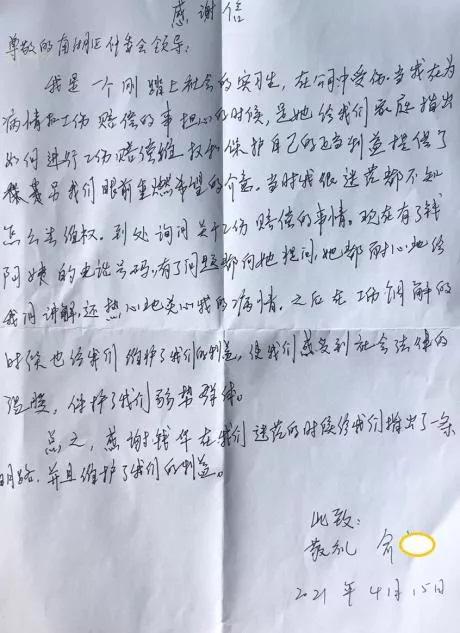 感谢信
尊敬的南湖区仲委会领导:
我是一个刚踏上社会的实习生,在公司中受伤。当我在为
病情和工伤赔偿的事担心的时候,是她给我们家庭指出
如何进行工伤赔偿维权和保护自己的正当利益提供了
另我们眼前重燃希望的介意。当时我很迷茫都不知
怎么去维权。到处询问关于工伤赔偿的事情。现在有了钱
阿姨的电话号码,有了问题都向她提问,她都耐心地给
我们讲解,还热心地关心我的病情。之后在工伤调解的
时候也给我们维护了我们的利益,使我们感受到社会法律的
温暖,保护了我们弱势群体。
总之,感谢钱华在我们迷茫的时候给我们指出了一条
明路,并且维护了我们的利益。
此致:
敬礼 俞
2021年4月15日